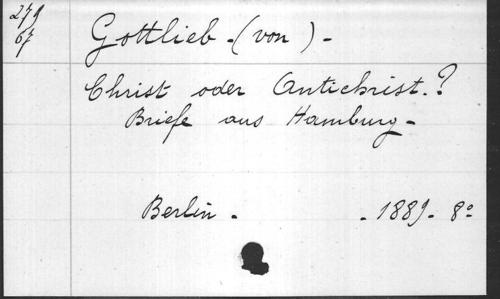 279
67
Gottlieb - (von) -
Christ oder Antichrist.?
Briefe aus Hamburg -
Berlin - - 1889 - 8º